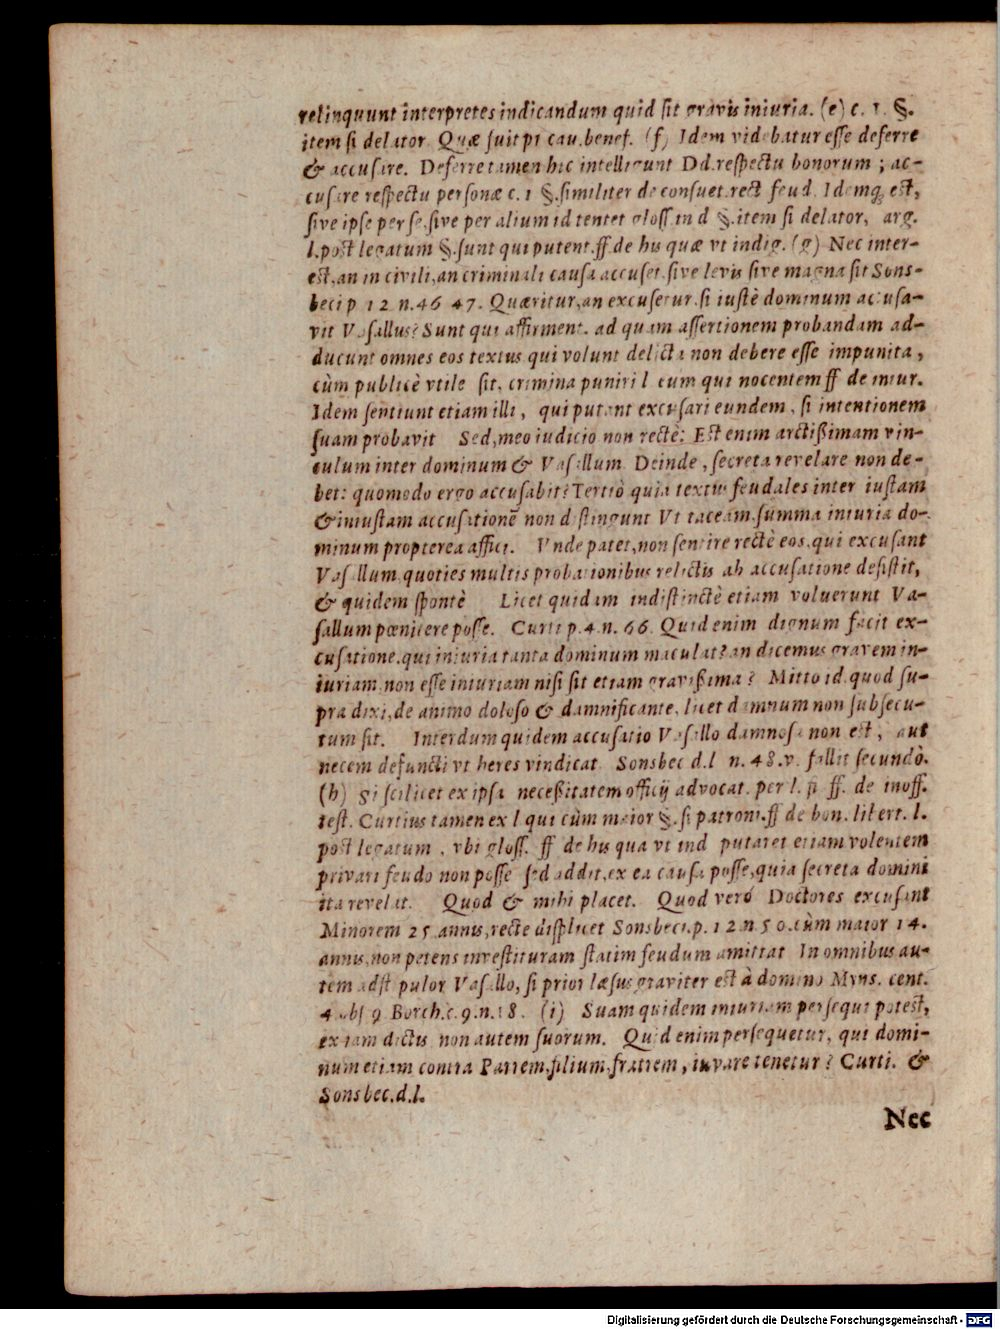 relinquunt interpretes indicandum quid sit gravis iniuria. (e) c. 1. §.
item si delator. Quæ fuit pr cau. benef. (f) Idem videbatur esse deferre
& accusare. Deferre tamen hic intelligunt Dd. respectu bonorum ; ac-
cusare respectu personæ c. 1 §. similiter de consuet. rect feud. Idemq; est,
sive ipse per se, sive per alium id tentet gloss. in d §. item si delator, arg.
l. post legatum §. sunt qui putent. ff. de his quæ vt indig. (g) Nec inter-
est, an in civili, an criminali causa accuset, sive levis sive magna sit Sons-
beci p 12 n. 46 47. Quæritur, an excusetur, si iustè dominum accusa-
vit Vasallus? Sunt qui affirment. ad quam assertionem probandam ad-
ducunt omnes eos textus qui volunt delicta non debere esse impunita,
cùm publicè vtile sit, crimina puniri l eum qui nocentem ff de iniur.
Idem sentiunt etiam illi, qui putant excusari eundem, si intentionem
suam probavit Sed, meo iudicio non rectè: Est enim arctißimam vin-
culum inter dominum & Vasallum. Deinde, secreta revelare non de-
bet: quomodo ergo accusabit? Tertiò quia textus feudales inter iustam
& iniustam accusationẽ non distingunt Vt taceam, summa iniuria do-
minum propterea affici. Vnde patet, non sentire rectè eos, qui excusant
Vasallum, quoties multis probationibus relictis ab accusatione desistit,
& quidem spontè Licet quidam indistinctè etiam voluerunt Va-
sallum pœnitere posse. Curti p. 4. n. 66. Quid enim dignum facit ex-
cusatione, qui iniuria tanta dominum maculat? an dicemus gravem in-
iuriam, non esse iniuriam nisi sit etiam gravißima? Mitto id, quod su-
pra dixi, de animo doloso & damnificante, licet damnum non subsecu-
tum sit. Interdum quidem accusatio Vasallo damnosa non est, aut
necem defuncti vt heres vindicat Sonsbec d. l n. 48. v. fallit secundò.
(h) Si scilicet ex ipsa neceßitatem officij advocat. per l. si ff. de inoff.
test. Curtius tamen ex l qui cùm maior §. si patroni. ff de bon. libert. l.
post legatum, vbi gloss. ff de his qua vt ind putaret etiam volentem
privari feudo non posse sed addit, ex ea causa posse, quia secreta domini
ita revelat. Quod & mihi placet. Quod verò Doctores excusant
Minorem 25 annis, recte displicet Sonsbeci. p. 12 n 50. cùm maior 14.
annis, non petens investituram statim feudum amittat In omnibus au-
tem adstipulor Vasallo, si prior læsus graviter est à domino Myns. cent.
4 obs 9 Borch. c. 9. n. 18. (i) Suam quidem iniuriam persequi potest,
ex iam dictis non autem suorum. Quid enim persequetur, qui domi-
num etiam contra Patrem, filium, fratrem, iuvare tenetur? Curti. &
Sonsbec. d. l.
Nec
Digitalisierung gefördert durch die Deutsche Forschungsgemeinschaft - DFG